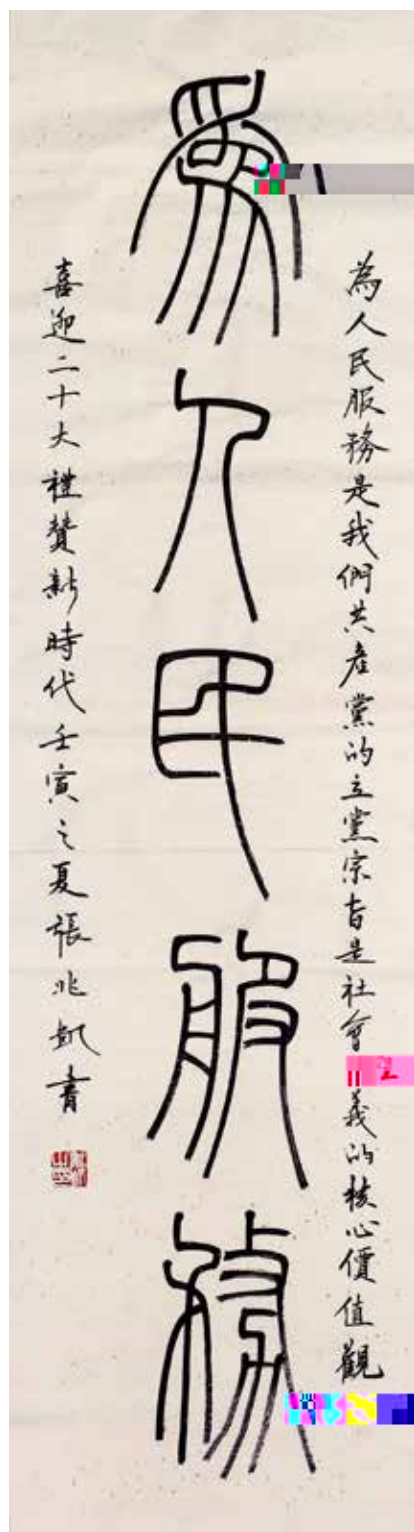 為人民服務是我們共產黨的立黨宗旨是社會義的核心價值觀
為人民服務
喜迎二十大禮贊新時代壬寅之夏張兆凱書